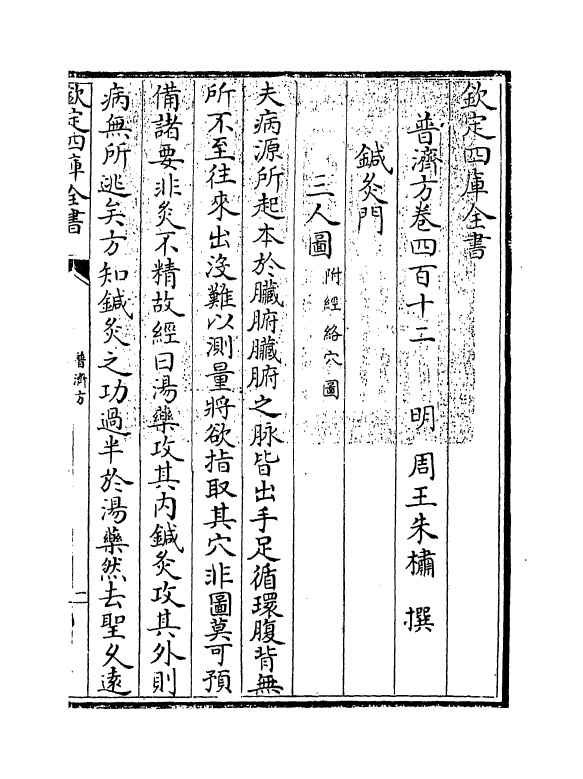 欽定四庫全書
普濟方卷四百十二　明　周王朱橚　撰
鍼灸門
三人圖附經絡穴圖
夫病源所起本於臟腑臟腑之脉皆出手足循環腹背無
所不至往來出没難以測量將欲指取其穴非圖莫可預
備諸要非灸不精故經曰湯藥攻其内鍼灸攻其外則
病無所逃矣方知鍼灸之功過半於湯藥然去聖久遠
欽定四庫全書
普濟方